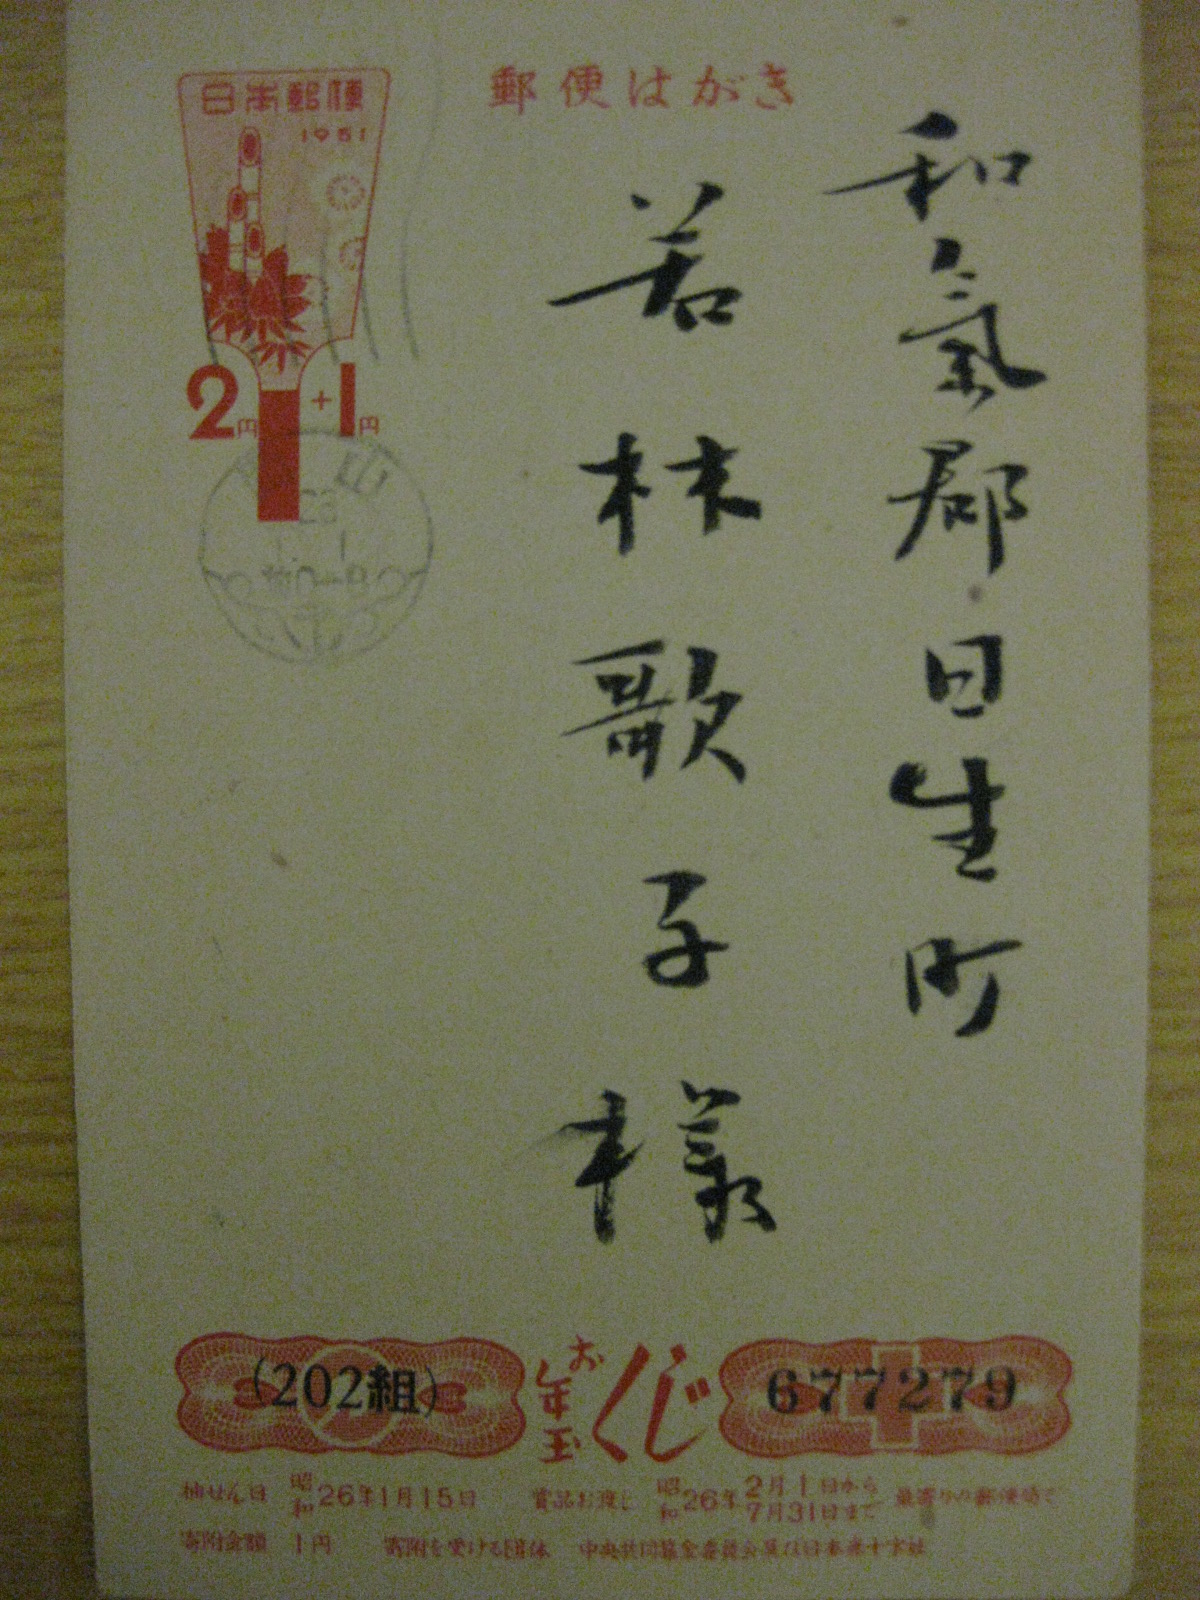 郵便はがき
日本郵便
1951
2円+1円
和氣郡日生町
若林歌子様
山
お年玉くじ
(202組)
677279
抽せん日 昭和26年1月15日 賞品お渡し 昭和26年2月1日から7月31日まで 最寄りの郵便局で
寄附金額 1円 寄附を受ける団体 中央共同募金委員会及び日本赤十字社